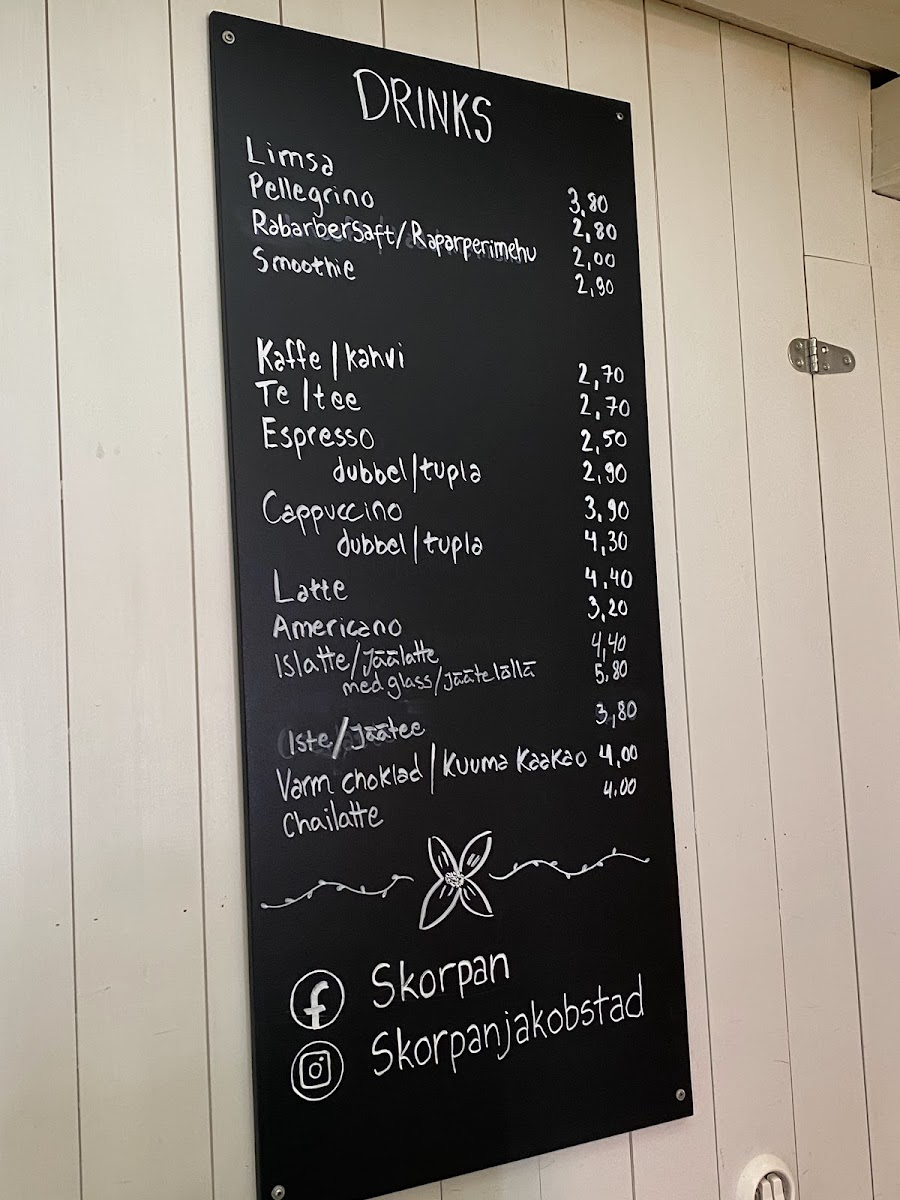 DRINKS
Limsa 3,80
Pellegrino 2,80
Rabarbersaft/Raparperimehu 2,00
Smoothie 2,90
Kaffe/kahvi 2,70
Te/tee 2,70
Espresso 2,50
dubbel/tupla 2,90
Cappuccino 3,90
dubbel/tupla 4,30
Latte 4,40
Americano 3,20
Islatte/Jäälatte 4,40
med glass/Jäätelöllä 5,80
Iste/Jäätee 3,80
Varm choklad/Kuuma Kaakao 4,00
Chailatte 4,00
Skorpan
Skorpanjakobstad